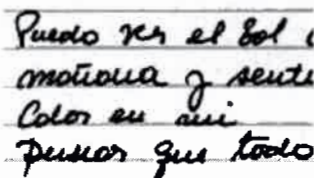 Puedo ver el Sol
mañana y sent
Calor en mi
pensar que todo